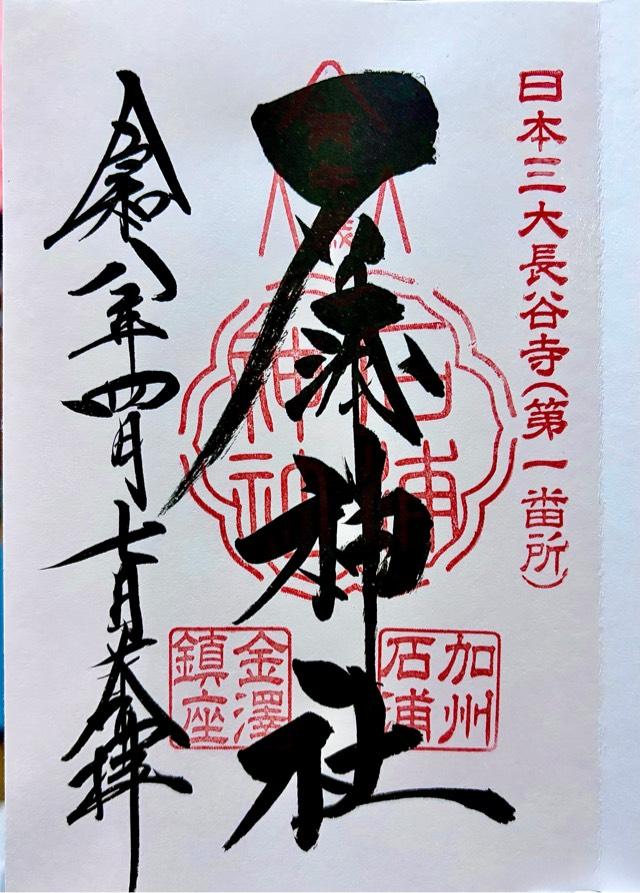 日本三大長谷寺(第一番所)
石浦神社
加州
石浦
金澤
鎮座
石浦
神社
令和八年四月七日奉拝